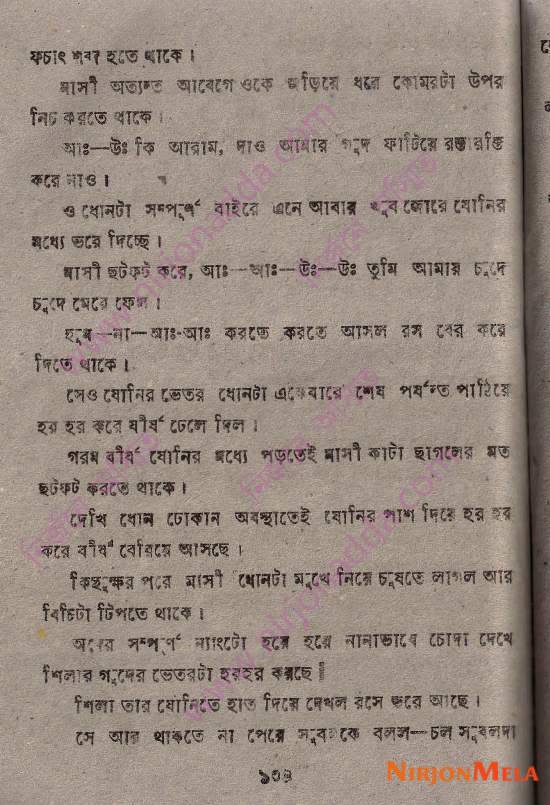 ফচাৎ শব্দ হতে থাকে।
মাসী অত্যন্ত আবেগে ওকে জড়িয়ে ধরে কোমরটা উপর
নিচ করতে থাকে।
আঃ—উঃ কি আরাম, দাও আমার গুদ ফাটিয়ে রক্তারক্তি
করে দাও।
ও ধোনটা সম্পূর্ণ বাইরে এনে আবার খুব জোরে যোনির
মধ্যে ভরে দিচ্ছে।
মাসী ছটফট করে, আঃ—আঃ—উঃ—উঃ তুমি আমায় চুদে
চুদে মেরে ফেল।
—না—আঃ-আঃ করতে করতে আসল রস বের করে
দিতে থাকে।
সেও যোনির ভেতর ধোনটা একেবারে শেষ পর্যন্ত পাঠিয়ে
হর হর করে বীর্য ঢেলে দিল।
গরম বীর্য যোনির মধ্যে পড়তেই মাসী কাটা ছাগলের মত
ছটফট করতে থাকে।
দেখি ধোন ঢোকান অবস্থাতেই যোনির পাশ দিয়ে হর হর
করে বীর্য বেরিয়ে আসছে।
কিছুক্ষণ পরে মাসী ধোনটা মুখে নিয়ে চুষতে লাগল আর
বিচিটা টিপতে থাকে।
সম্পূর্ণ ন্যাংটো হয়ে হয়ে নানাভাবে চোদা দেখে
শিলার গুদের ভেতরটা হরহর করছে।
শিলা তার যোনিতে হাত দিয়ে দেখল রসে ভরে আছে।
সে আর থাকতে না পেরে সুবলকে বলল—চল সুবলদা
NIRJONMELA